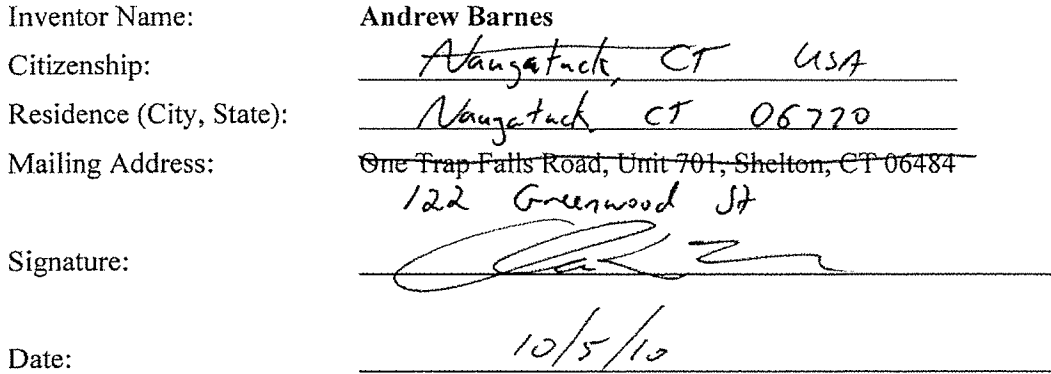 Inventor Name: Andrew Barnes
Citizenship: Naugatuck, CT USA
Residence (City, State): Naugatuck CT 06770
Mailing Address: One Trap Falls Road, Unit 701, Shelton, CT 06484
122 Greenwood St
Signature:
Date: 10/5/10